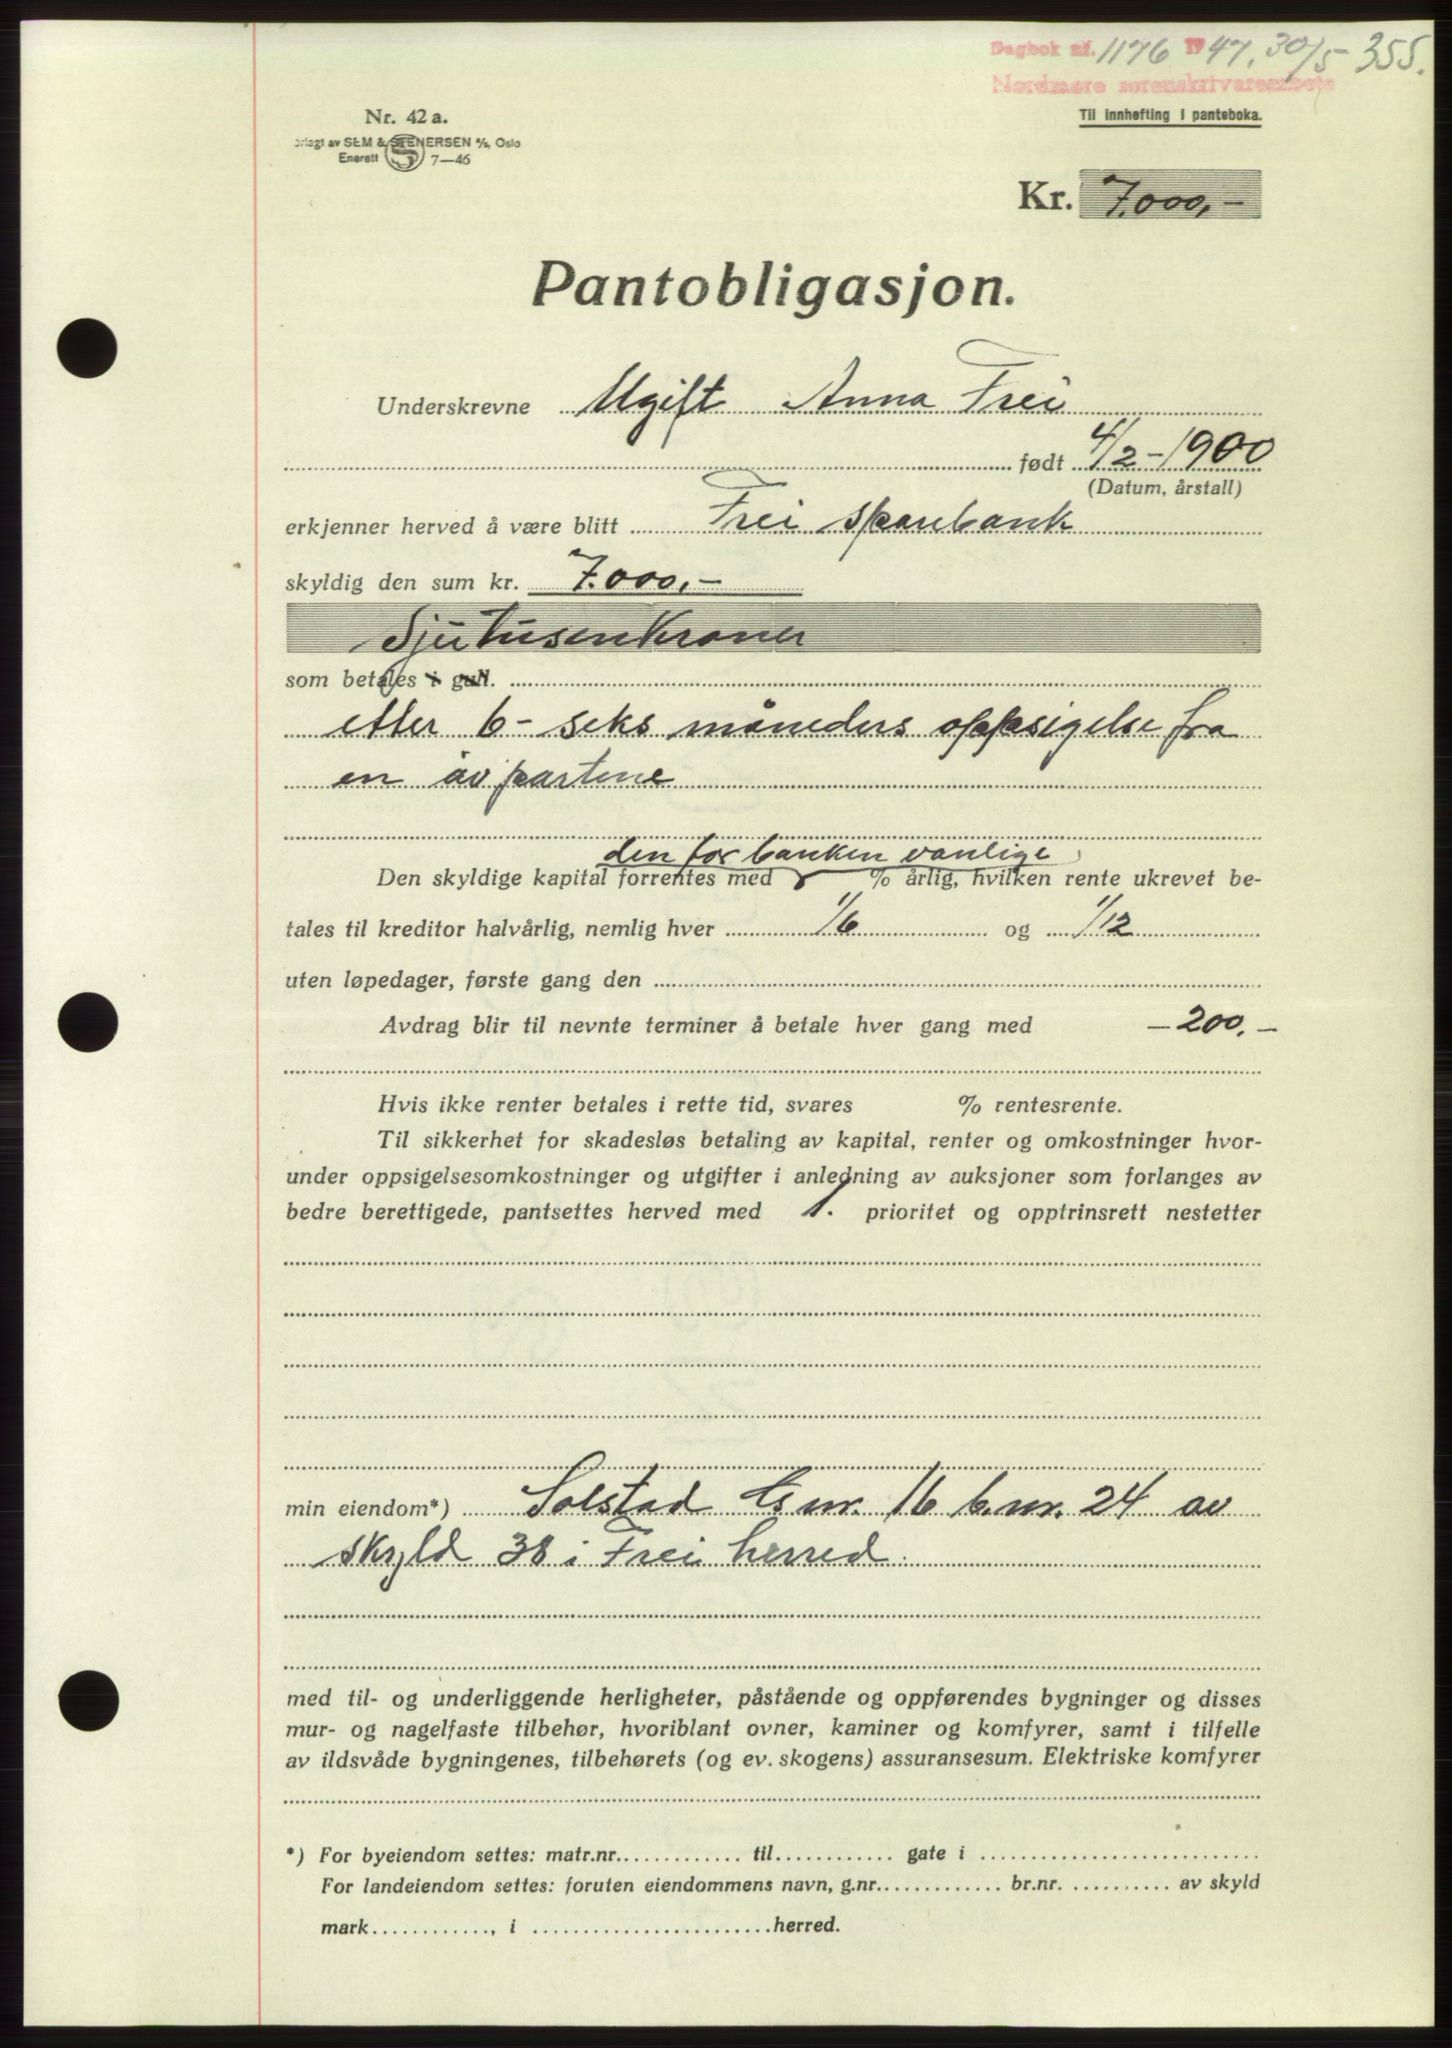 Dagbok nr. 1176 1947, 30/5 - 355.
Nordmøre sorenskriverembete
Til innhefting i panteboka.
Nr. 42 a.
SEM & STENERSEN A/S, Oslo
Enerett 7—46
Kr. 7.000,-
Pantobligasjon.
Underskrevne Ugift Anna Frei
født 4/2 - 1900
(Datum, årstall)
erkjenner herved å være blitt Frei sparebank
skyldig den sum kr. 7.000,-
Sjutusenkroner
som betales i gull.
etter 6 - seks måneders oppsigelse fra
en av partene
den for banken vanlige
Den skyldige kapital forrentes med % årlig, hvilken rente ukrevet be-
tales til kreditor halvårlig, nemlig hver 1/6 og 1/12
uten løpedager, første gang den
Avdrag blir til nevnte terminer å betale hver gang med — 200,-
Hvis ikke renter betales i rette tid, svares % rentesrente.
Til sikkerhet for skadesløs betaling av kapital, renter og omkostninger hvor-
under oppsigelsesomkostninger og utgifter i anledning av auksjoner som forlanges av
bedre berettigede, pantsettes herved med 1. prioritet og opptrinsrett nestetter
min eiendom*) Solstad G.nr. 16 b.nr. 24 av
skyld 38 i Frei herred.
med til- og underliggende herligheter, påstående og oppførendes bygninger og disses
mur- og nagelfaste tilbehør, hvoriblant ovner, kaminer og komfyrer, samt i tilfelle
av ildsvåde bygningenes, tilbehørets (og ev. skogens) assuransesum. Elektriske komfyrer
*) For byeiendom settes: matr.nr. til gate i
For landeiendom settes: foruten eiendommens navn, g.nr. br.nr. av skyld
mark , i herred.